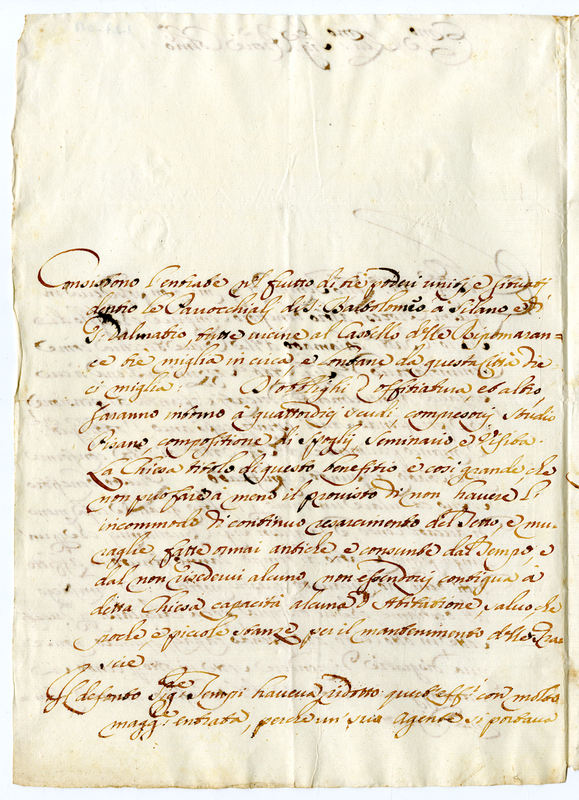 Consistono l'entrate nel frutto di tre poderi uniti, e situati
dentro le Parocchiali di S. Bartolomeo à Silano e di
S. Dalmatio, tutte vicine al Castello delle Ripomaran=
ce tre miglia in circa, e lontane da questa Città die
ci miglia: Gl'oblighi l'offitiatura, et altro,
saranno intorno à quattordici scudi, compresovi Studio
Pisano compositione di Spoglij Seminario e Visita.
La Chiesa titolo di questo benefitio è così grande, che
non può fare à meno il provisto di non havere l'
incommodo di continuo resarcimento del Tetto, e mu
raglie, fatte ormai antiche, e consunte dal Tempo, e
dal non risedervi alcuno, non essendovi contigua à
detta Chiesa capacità alcuna d'Abitatione salvo che
poche e piccole stanze per il mantenimento delle Gra
scie
Il defonto Sig.re Tempi haveva ridotto quest'effi con molta
magg.re entrata, perche un suo Agente si portava